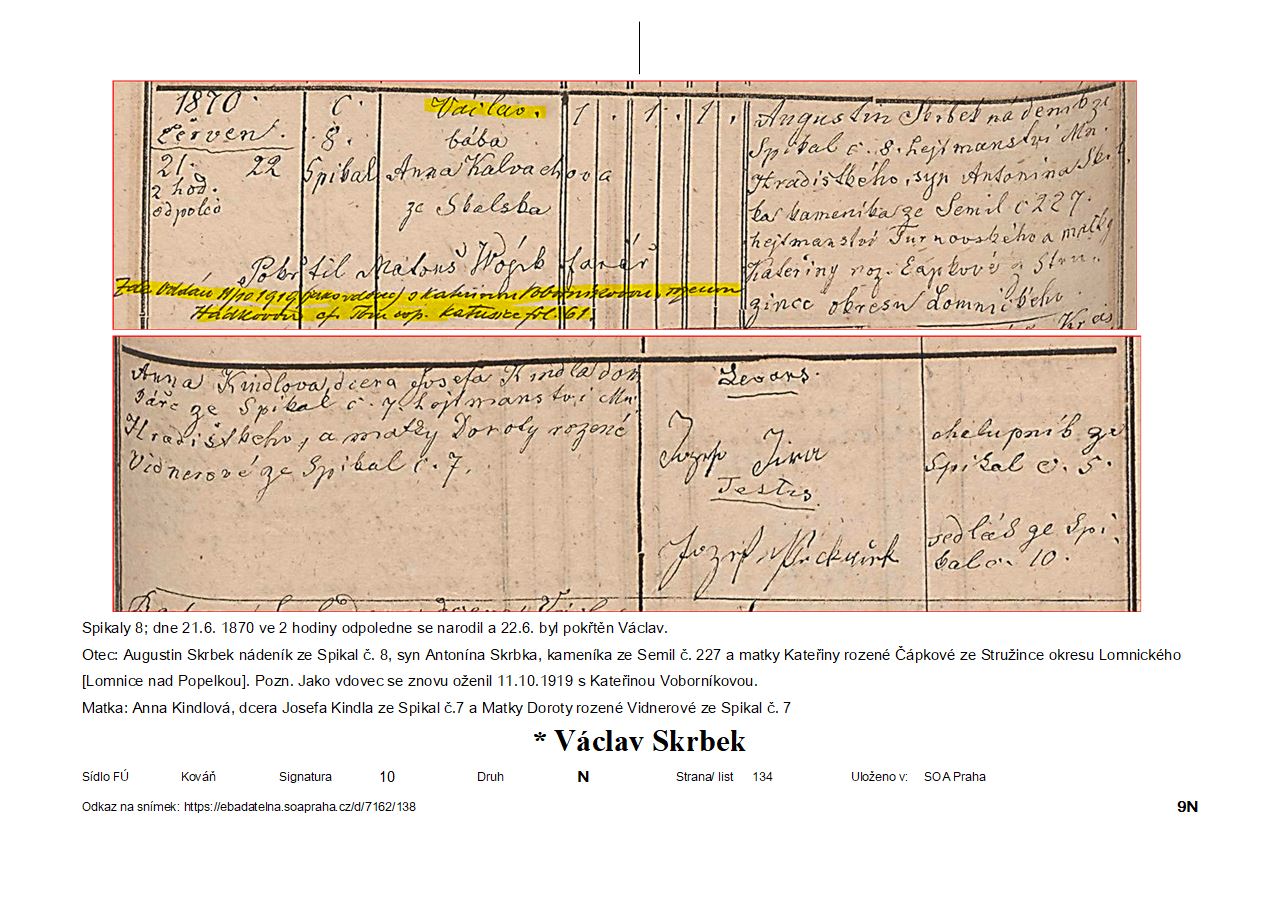 1870.
Červen.
21. 22
2 hod.
odpolď
č.
8.
Spikal
Václav.
bába
Anna Kalvachova
ze Skalska
1 1. 1.
Pokřtil Matouš farář
Zde oddán 11/10 1919 s Kateřinou Voborníkovou,
cop. fol. 61.
Augustin Skrbek nádeník ze
Spikal č. 8. hejtmanství Mn.
Hradišťského, syn Antonína Skrb
ka kameníka ze Semil č 227.
hejtmanství Turnovského a matky
Kateřiny roz. Čápkové z Stru-
žince okresu Lomnického
Anna Kindlova, dcera Josefa Kindla dom
káře ze Spikal č. 7. hejtmanství Mn.
Hradišťského, a matky Doroty rozené
Vidnerové ze Spikal č. 7.
Levans.
Jozef Jíra
chalupník ze
Spikal č. 5.
Testis
Jozef
sedlák ze Spi-
kal č. 10.
Spikaly 8; dne 21.6. 1870 ve 2 hodiny odpoledne se narodil a 22.6. byl pokřtěn Václav.
Otec: Augustin Skrbek nádeník ze Spikal č. 8, syn Antonína Skrbka, kameníka ze Semil č. 227 a matky Kateřiny rozené Čápkové ze Stružince okresu Lomnického
[Lomnice nad Popelkou]. Pozn. Jako vdovec se znovu oženil 11.10.1919 s Kateřinou Voborníkovou.
Matka: Anna Kindlová, dcera Josefa Kindla ze Spikal č.7 a Matky Doroty rozené Vidnerové ze Spikal č. 7
* Václav Skrbek
Sídlo FÚ Kováň Signatura 10 Druh N Strana/ list 134 Uloženo v: SOA Praha
Odkaz na snímek: https://ebadatelna.soapraha.cz/d/7162/138
9N